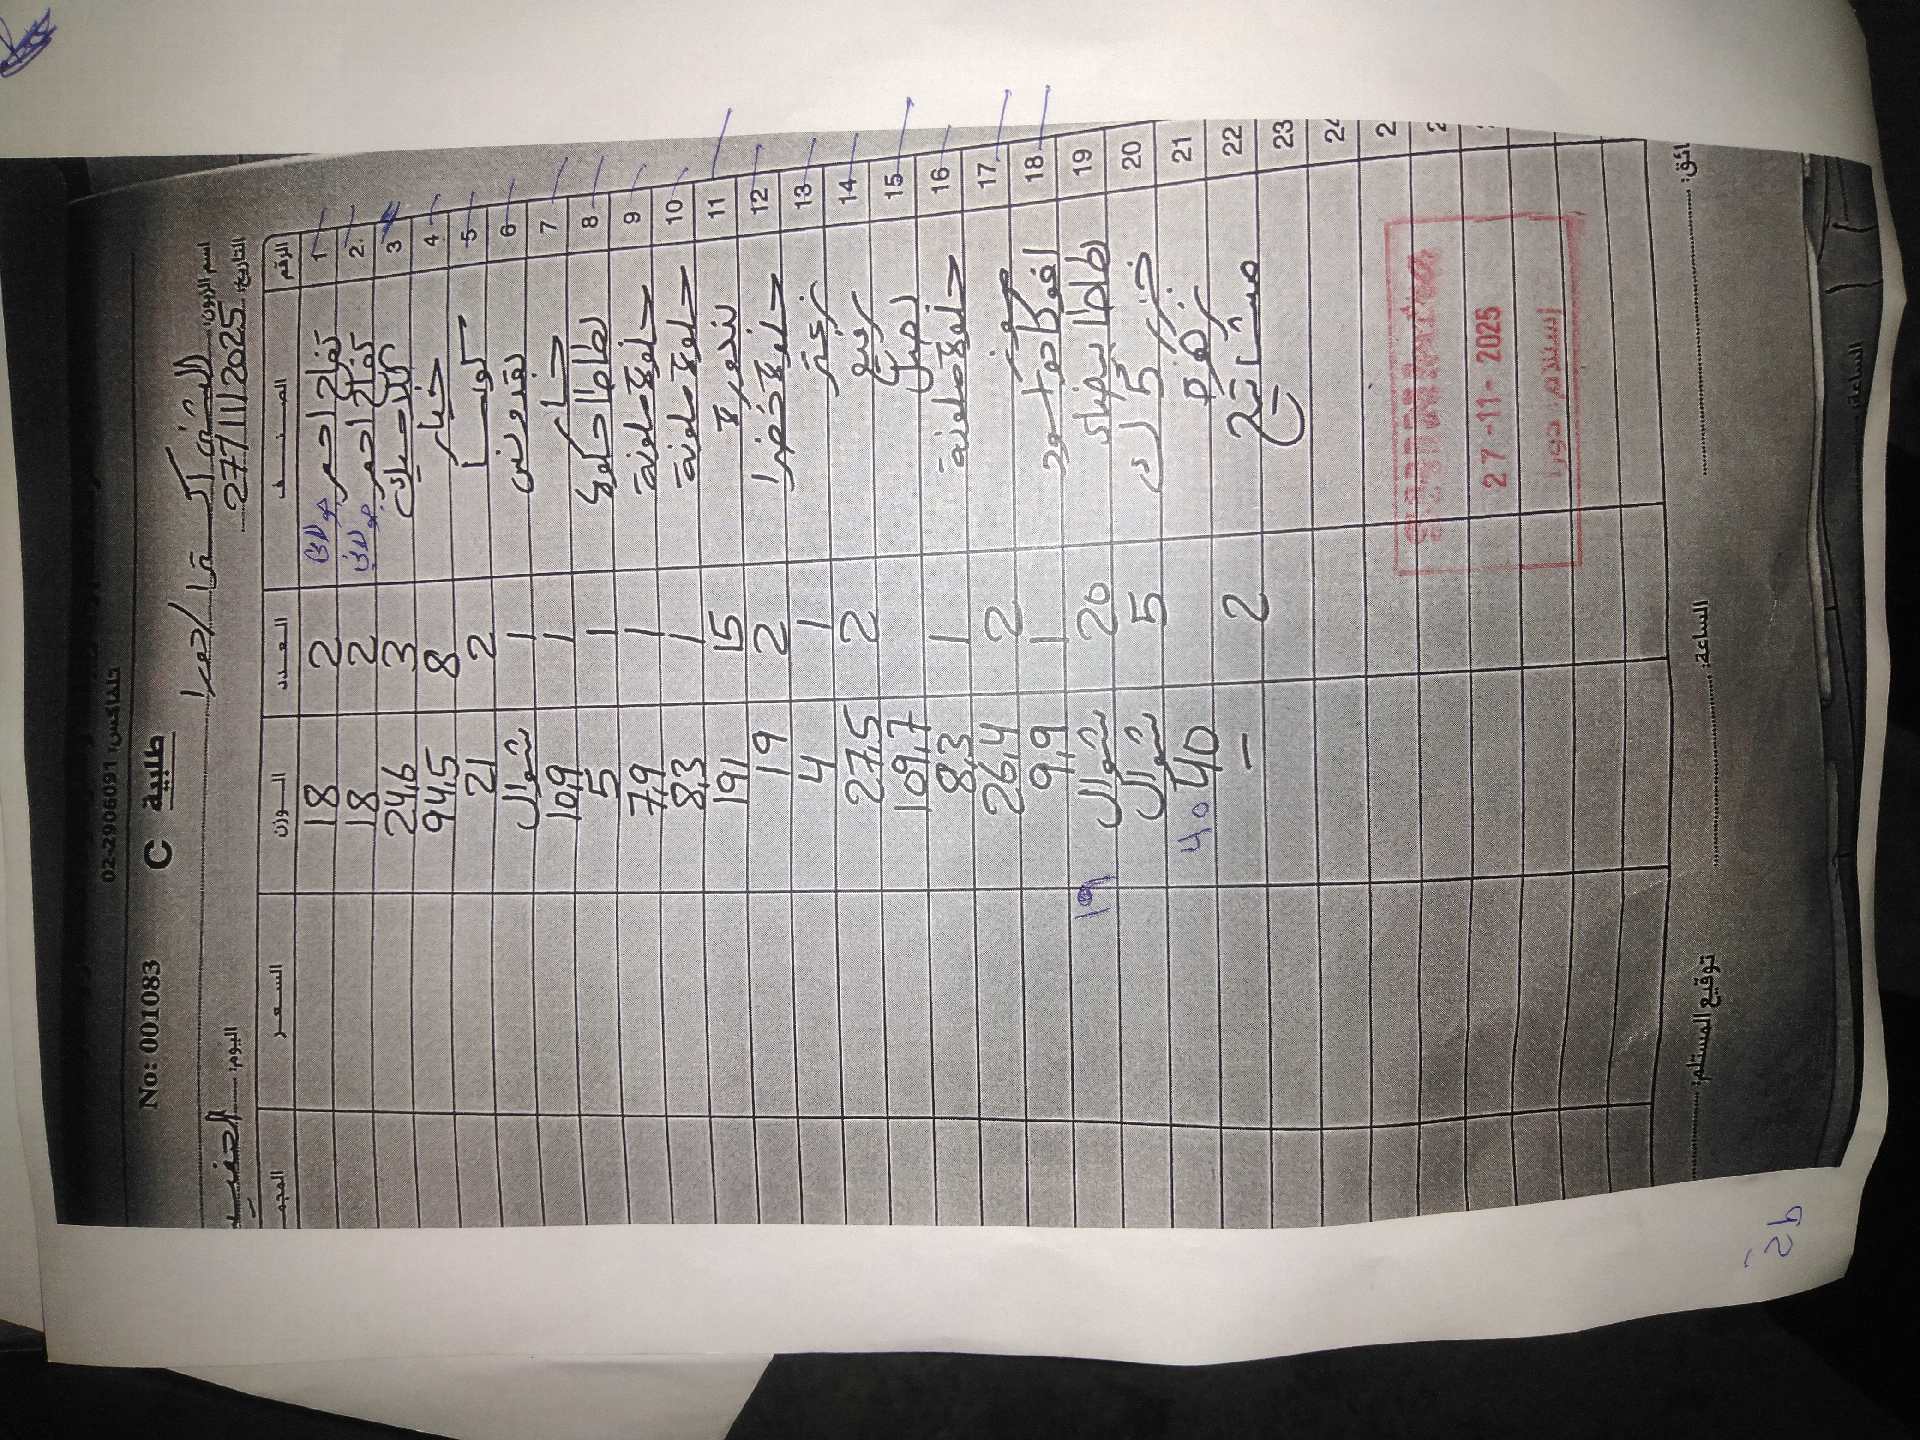 تلفاكس: 02-2906091
No: 001083 C طلبية
اسم الزبون:
اليوم: الخميس التاريخ: 27/11/2025
الرقم الصنف العدد الوزن السعر
1 تفاح احمر 2 18
2 تفاح احمر 2 18
3 3 24,6
4 خيار 8 94,5
5 كوسا 2 21
6 بقدونس 1 شوال
7 خيار 1 10,9
8 بطاطا حلوة 1 5
9 حلوة ملونة 1 7,9
10 حلوة ملونة 1 8,3
11 بندورة 15 191
12 حلوة خضرا 2 19
13 1 4
14 2 27,5
15 109,7
16 حلوة ملونة 1 8,3
17 موز 2 26,4
18 افوكادو 1 9,9
19 بطاطا 20 شوال 19
20 جزر 5 شوال
21 40 40
22 2 -
23
27-11-2025
إستلام: دورا
الساعة:
توقيع المستلم:
الساعة:
92